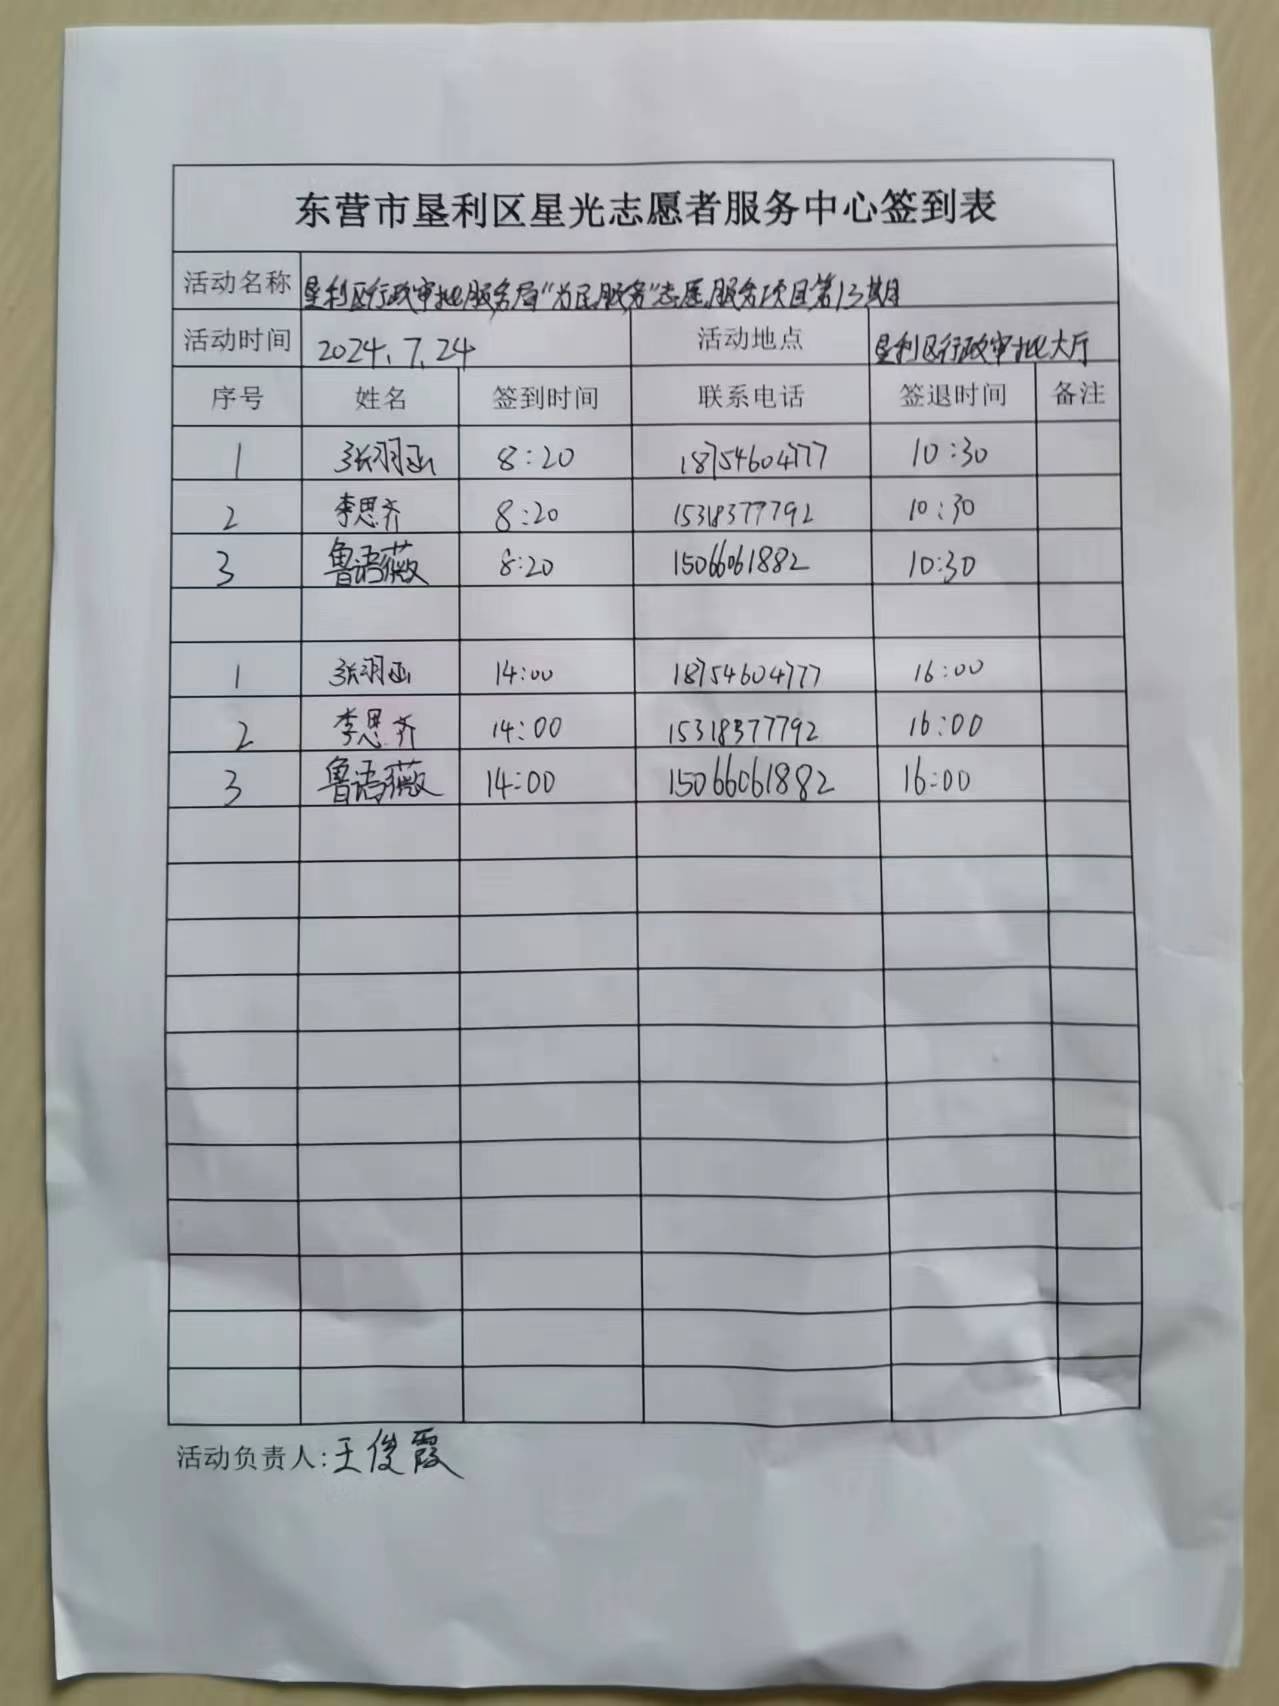 东营市垦利区星光志愿者服务中心签到表
活动名称 垦利区行政审批服务局“为民服务”志愿服务项目第13期
活动时间 2024.7.24 活动地点 垦利区行政审批大厅
序号 姓名 签到时间 联系电话 签退时间 备注
1 张羽函 8:20 18754604777 10:30
2 李思齐 8:20 15318377792 10:30
3 鲁语薇 8:20 15066061882 10:30
1 张羽函 14:00 18754604777 16:00
2 李思齐 14:00 15318377792 16:00
3 鲁语薇 14:00 15066061882 16:00
活动负责人:王俊霞